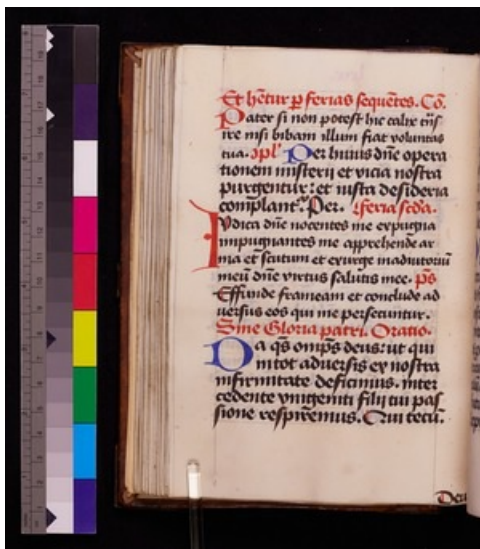 Et hēntur ꝑ ferias sequētes. Cō.
Pater si non potest hic calix trās
ire nisi bibam illum fiat voluntas
tua. ɔpl' Per huius dn̄e opera
tionem misterij et vicia nostra
purgentur: et iusta desideria
compleant.' Per. feria scda.
Iudica dn̄e nocentes me expugna
impugnantes me apprehende ar
ma et scutum et exurge inadiutoriū
meū dn̄e virtus salutis mee. ps
Effunde frameam et conclude ad
uersus eos qui me persecuntur.
Sine Gloria patri. Oratio.
Da qs omps deus: ut qui
in tot aduersis ex nostra
infirmitate deficimus. inter
cedente vnigeniti filij tui pas
sione respiremus. Qui tecū.